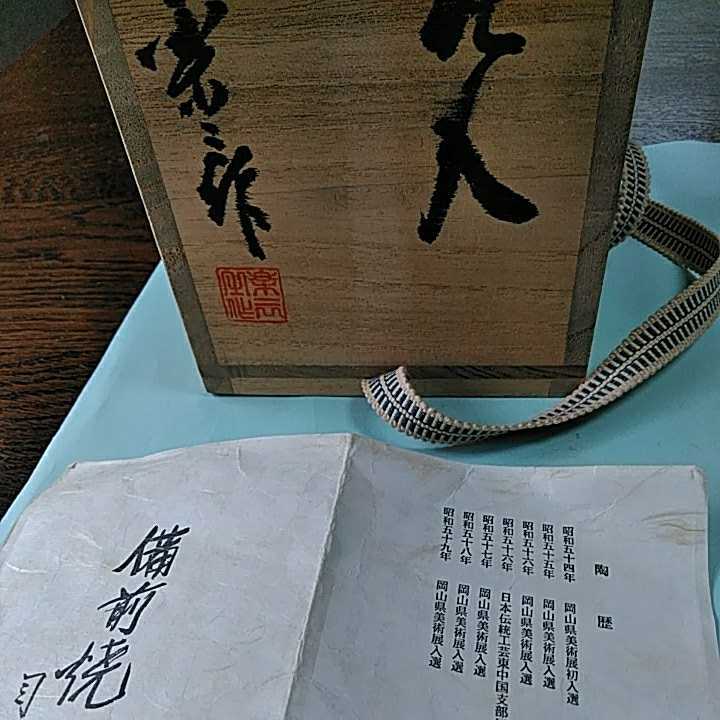 花人
宗三作
陶歴
昭和五十四年 岡山県美術展初入選
昭和五十五年 岡山県美術展入選
昭和五十六年 岡山県美術展入選
昭和五十六年 日本伝統工芸東中国支部
昭和五十七年 岡山県美術展入選
昭和五十八年 岡山県美術展入選
昭和五十九年 岡山県美術展入選
備前焼